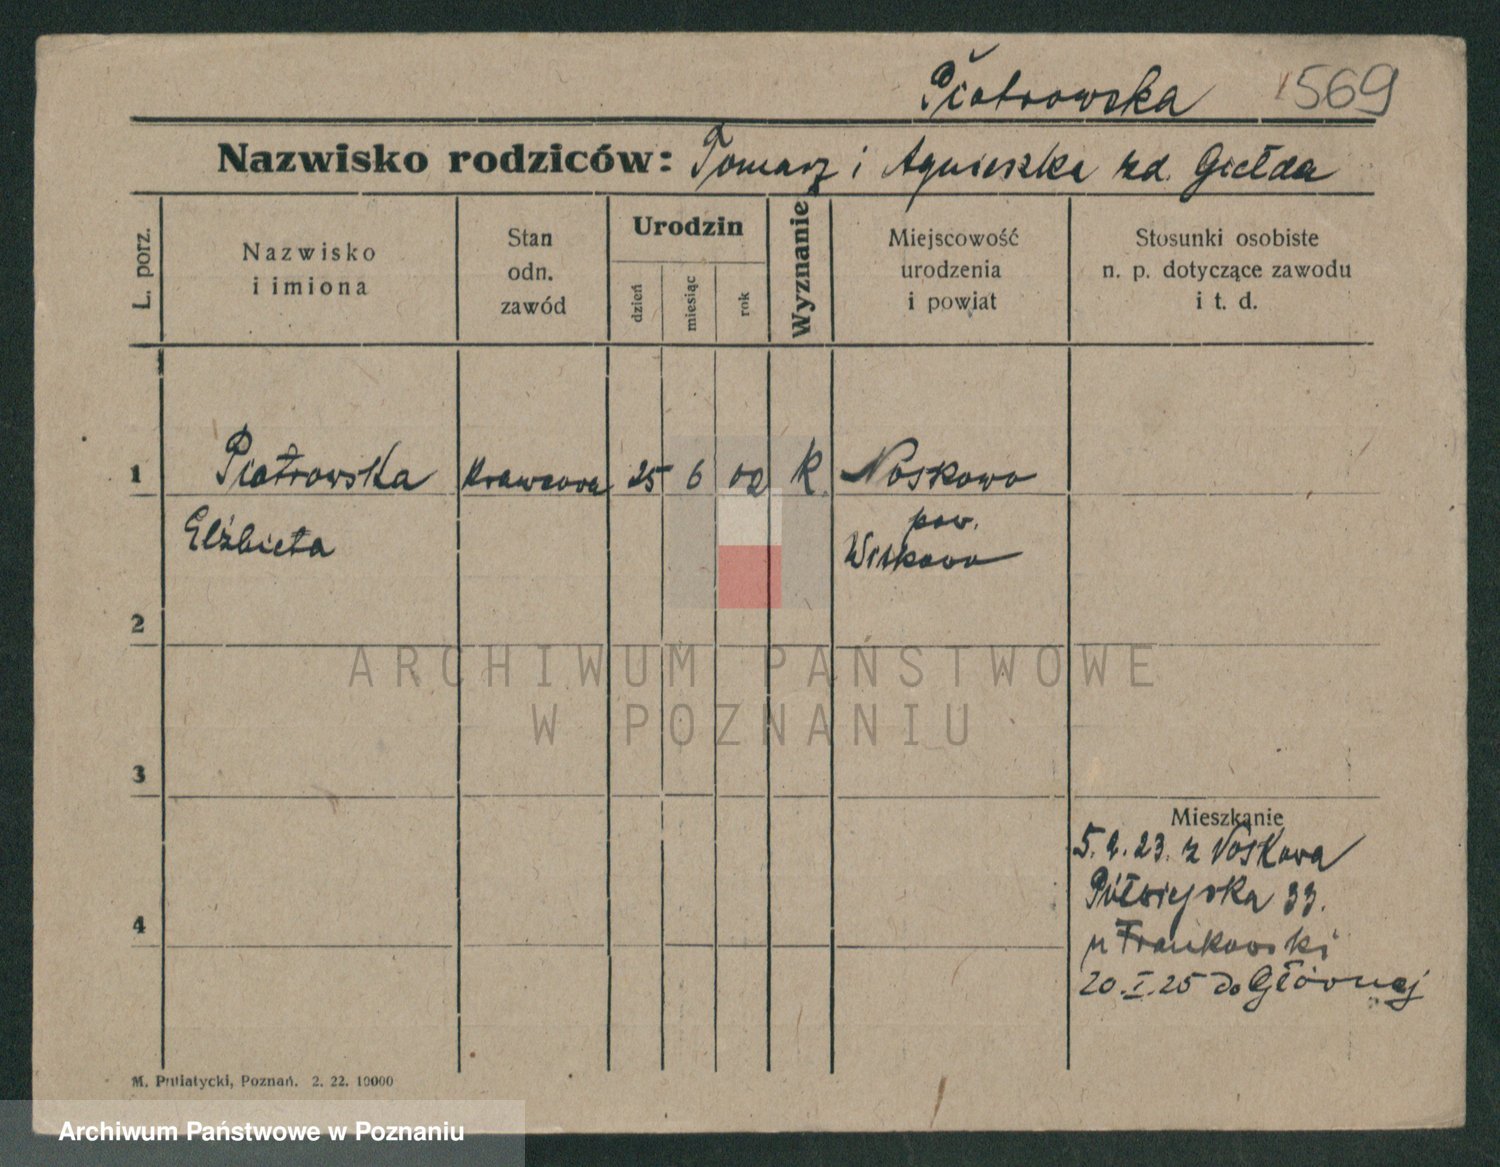 Piotrowska 1569
Nazwisko rodziców: Tomasz i Agnieszka zd. Giełda
L. porz.
Nazwisko
i imiona
Stan
odn.
zawód
Urodzin
dzień
miesiąc
rok
Wyznanie
Miejscowość
urodzenia
i powiat
Stosunki osobiste
n. p. dotyczące zawodu
i t. d.
1 Piotrowska Krawcowa 25 6 02 k Noskowo
Elżbieta pow.
Witkowo
2
3
4
Mieszkanie
5.2.23. z Noskowa
Półwiejska 33.
u Frankowski
20.I.25 do Głównej
M. Putiatycki, Poznań. 2. 22. 10000
ARCHIWUM PAŃSTWOWE
W POZNANIU
Archiwum Państwowe w Poznaniu